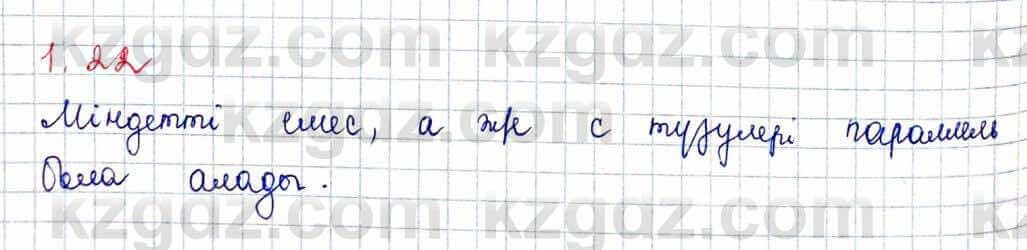 kzgdz.com kzgdz.com k
1.22
Міндетті емес, а же с түзулері параллель
бола алады.
kzgdz.com
kzgdz.com kzgdz.com k